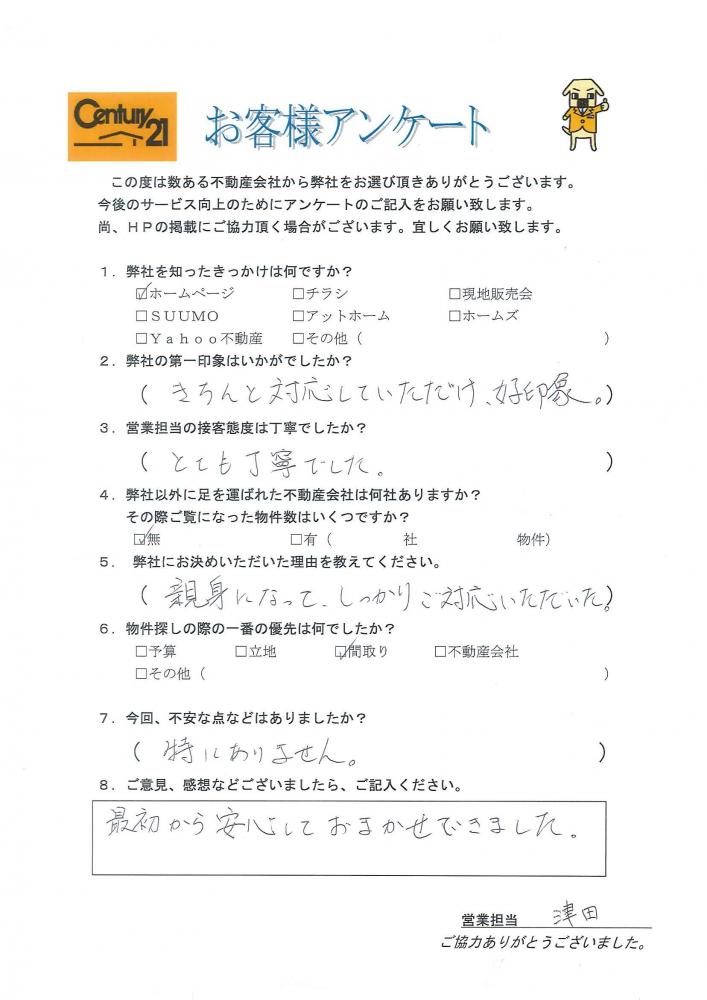 Century 21
お客様アンケート
この度は数ある不動産会社から弊社をお選び頂きありがとうございます。
今後のサービス向上のためにアンケートのご記入をお願い致します。
尚、HPの掲載にご協力頂く場合がございます。宜しくお願い致します。
1．弊社を知ったきっかけは何ですか？
☑ホームページ □チラシ □現地販売会
□SUUMO □アットホーム □ホームズ
□Yahoo不動産 □その他（ ）
2．弊社の第一印象はいかがでしたか？
（ きちんと対応していただけ、好印象。）
3．営業担当の接客態度は丁寧でしたか？
（ とても丁寧でした。 ）
4．弊社以外に足を運ばれた不動産会社は何社ありますか？
その際ご覧になった物件数はいくつですか？
☑無 □有（ 社 物件）
5． 弊社にお決めいただいた理由を教えてください。
（ 親身になって、しっかりご対応いただいた。）
6．物件探しの際の一番の優先は何でしたか？
□予算 □立地 ☑間取り □不動産会社
□その他（ ）
7．今回、不安な点などはありましたか？
（ 特にありません。 ）
8．ご意見、感想などございましたら、ご記入ください。
最初から安心しておまかせできました。
営業担当 津田
ご協力ありがとうございました。